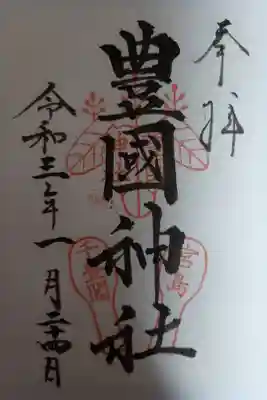 奉拝
豊國神社
宮島
千畳閣
令和三年一月二十四日